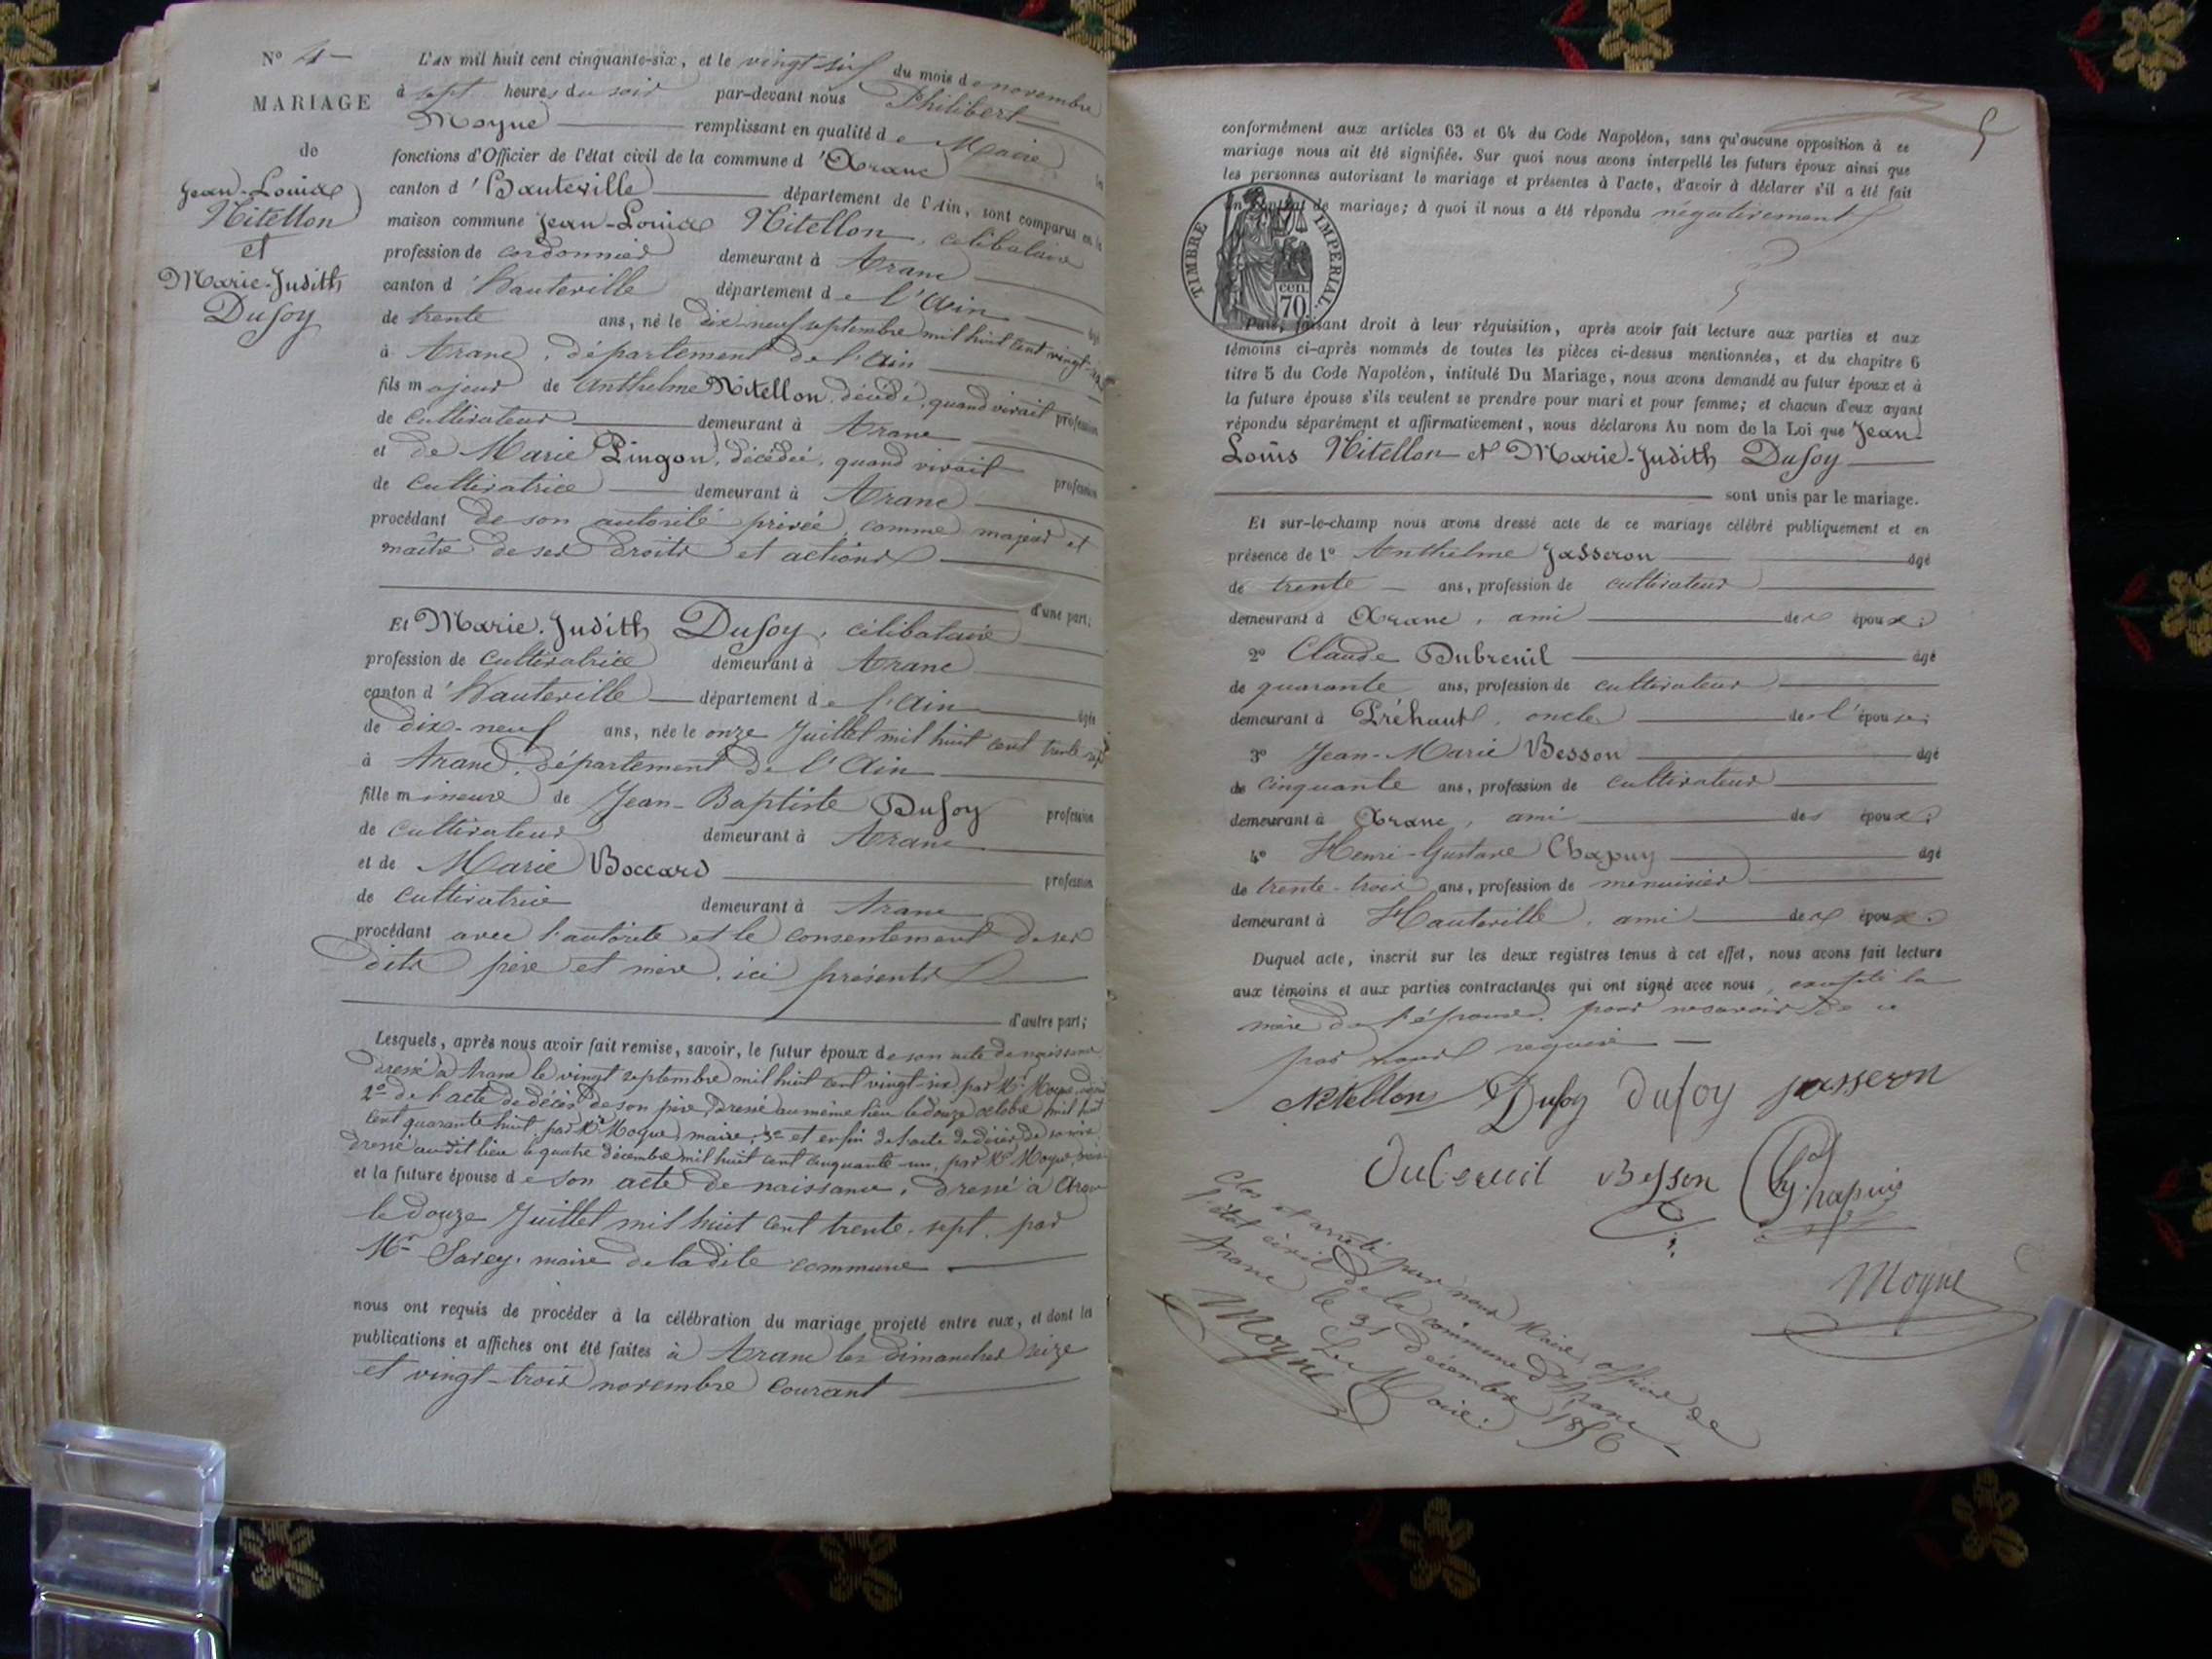 N° 4
MARIAGE
de
Jean-Louis
Nitellon
et
Marie-Judith
Dufoy
L'AN mil huit cent cinquante-six, et le vingt six du mois de novembre
à sept heures du soir par-devant nous Philibert
Moyne remplissant en qualité de Maire
fonctions d'Officier de l'état civil de la commune d'Aranc
canton d'Hauteville département de l'Ain, sont comparus en la
maison commune Jean-Louis Nitellon, célibataire
profession de cordonnier demeurant à Aranc
canton d'Hauteville département de l'Ain
de trente ans, né le dix-neuf septembre mil huit cent vingt-six
à Aranc, département de l'Ain
fils majeur de Anthelme Nitellon, décédé, quand vivait profession
de cultivateur demeurant à Aranc
et de Marie Pingon, décédée, quand vivait profession
de cultivatrice demeurant à Aranc
procédant de son autorité privée, comme majeur et
maître de ses droits et actions
d'une part;
Et Marie-Judith Dufoy, célibataire
profession de cultivatrice demeurant à Aranc
canton d'Hauteville département de l'Ain âgée
de dix-neuf ans, née le onze Juillet mil huit cent trente-sept
à Aranc, département de l'Ain
fille mineure de Jean-Baptiste Dufoy profession
de cultivateur demeurant à Aranc
et de Marie Boccard profession
de cultivatrice demeurant à Aranc
procédant avec l'autorité et le consentement de ses
dits père et mère, ici présents
d'autre part;
Lesquels, après nous avoir fait remise, savoir, le futur époux de son acte de naissance
dressé à Aranc le vingt septembre mil huit cent vingt-six par Mr Moyne, maire
2° de l'acte de décès de son père, dressé au même lieu le douze octobre mil huit
cent quarante huit, par Mr Moyne, maire, 3° et enfin de l'acte de décès de sa mère
dressé audit lieu le quatre décembre mil huit cent cinquante-un, par Mr Moyne, maire
et la future épouse de son acte de naissance, dressé à Aranc
le douze Juillet mil huit cent trente-sept, par
Mr Savey, maire de ladite commune
nous ont requis de procéder à la célébration du mariage projeté entre eux, et dont les
publications et affiches ont été faites à Aranc les dimanches seize
et vingt-trois novembre courant
5
conformément aux articles 63 et 64 du Code Napoléon, sans qu'aucune opposition à ce
mariage nous ait été signifiée. Sur quoi nous avons interpellé les futurs époux ainsi que
les personnes autorisant le mariage et présentes à l'acte, d'avoir à déclarer s'il a été fait
un contrat de mariage; à quoi il nous a été répondu négativement
TIMBRE IMPERIAL.
cen.
70
Puis, faisant droit à leur réquisition, après avoir fait lecture aux parties et aux
témoins ci-après nommés de toutes les pièces ci-dessus mentionnées, et du chapitre 6
titre 5 du Code Napoléon, intitulé Du Mariage, nous avons demandé au futur époux et à
la future épouse s'ils veulent se prendre pour mari et pour femme; et chacun d'eux ayant
répondu séparément et affirmativement, nous déclarons Au nom de la Loi que Jean-
Louis Nitellon et Marie-Judith Dufoy
sont unis par le mariage.
Et sur-le-champ nous avons dressé acte de ce mariage célébré publiquement et en
présence de 1° Anthelme Jasseron âgé
de trente ans, profession de cultivateur
demeurant à Aranc, ami des époux;
2° Claude Dubreuil âgé
de quarante ans, profession de cultivateur
demeurant à Préhaut, oncle de l'épouse;
3° Jean-Marie Besson âgé
de cinquante ans, profession de cultivateur
demeurant à Aranc, ami des époux;
4° Henri-Gustave Chapuy âgé
de trente-trois ans, profession de menuisier
demeurant à Hauteville, ami des époux.
Duquel acte, inscrit sur les deux registres tenus à cet effet, nous avons fait lecture
aux témoins et aux parties contractantes qui ont signé avec nous, excepté la
mère de l'épouse, pour ne savoir de ce
par nous requise
Nitellon Dufoy Dufoy Jasseron
Dubreuil Besson Chapuis
Moyne
Clos et arrêté par nous Maire, officier de
l'état civil de la commune d'Aranc
Aranc le 31 décembre 1856
Le Maire.
Moyne